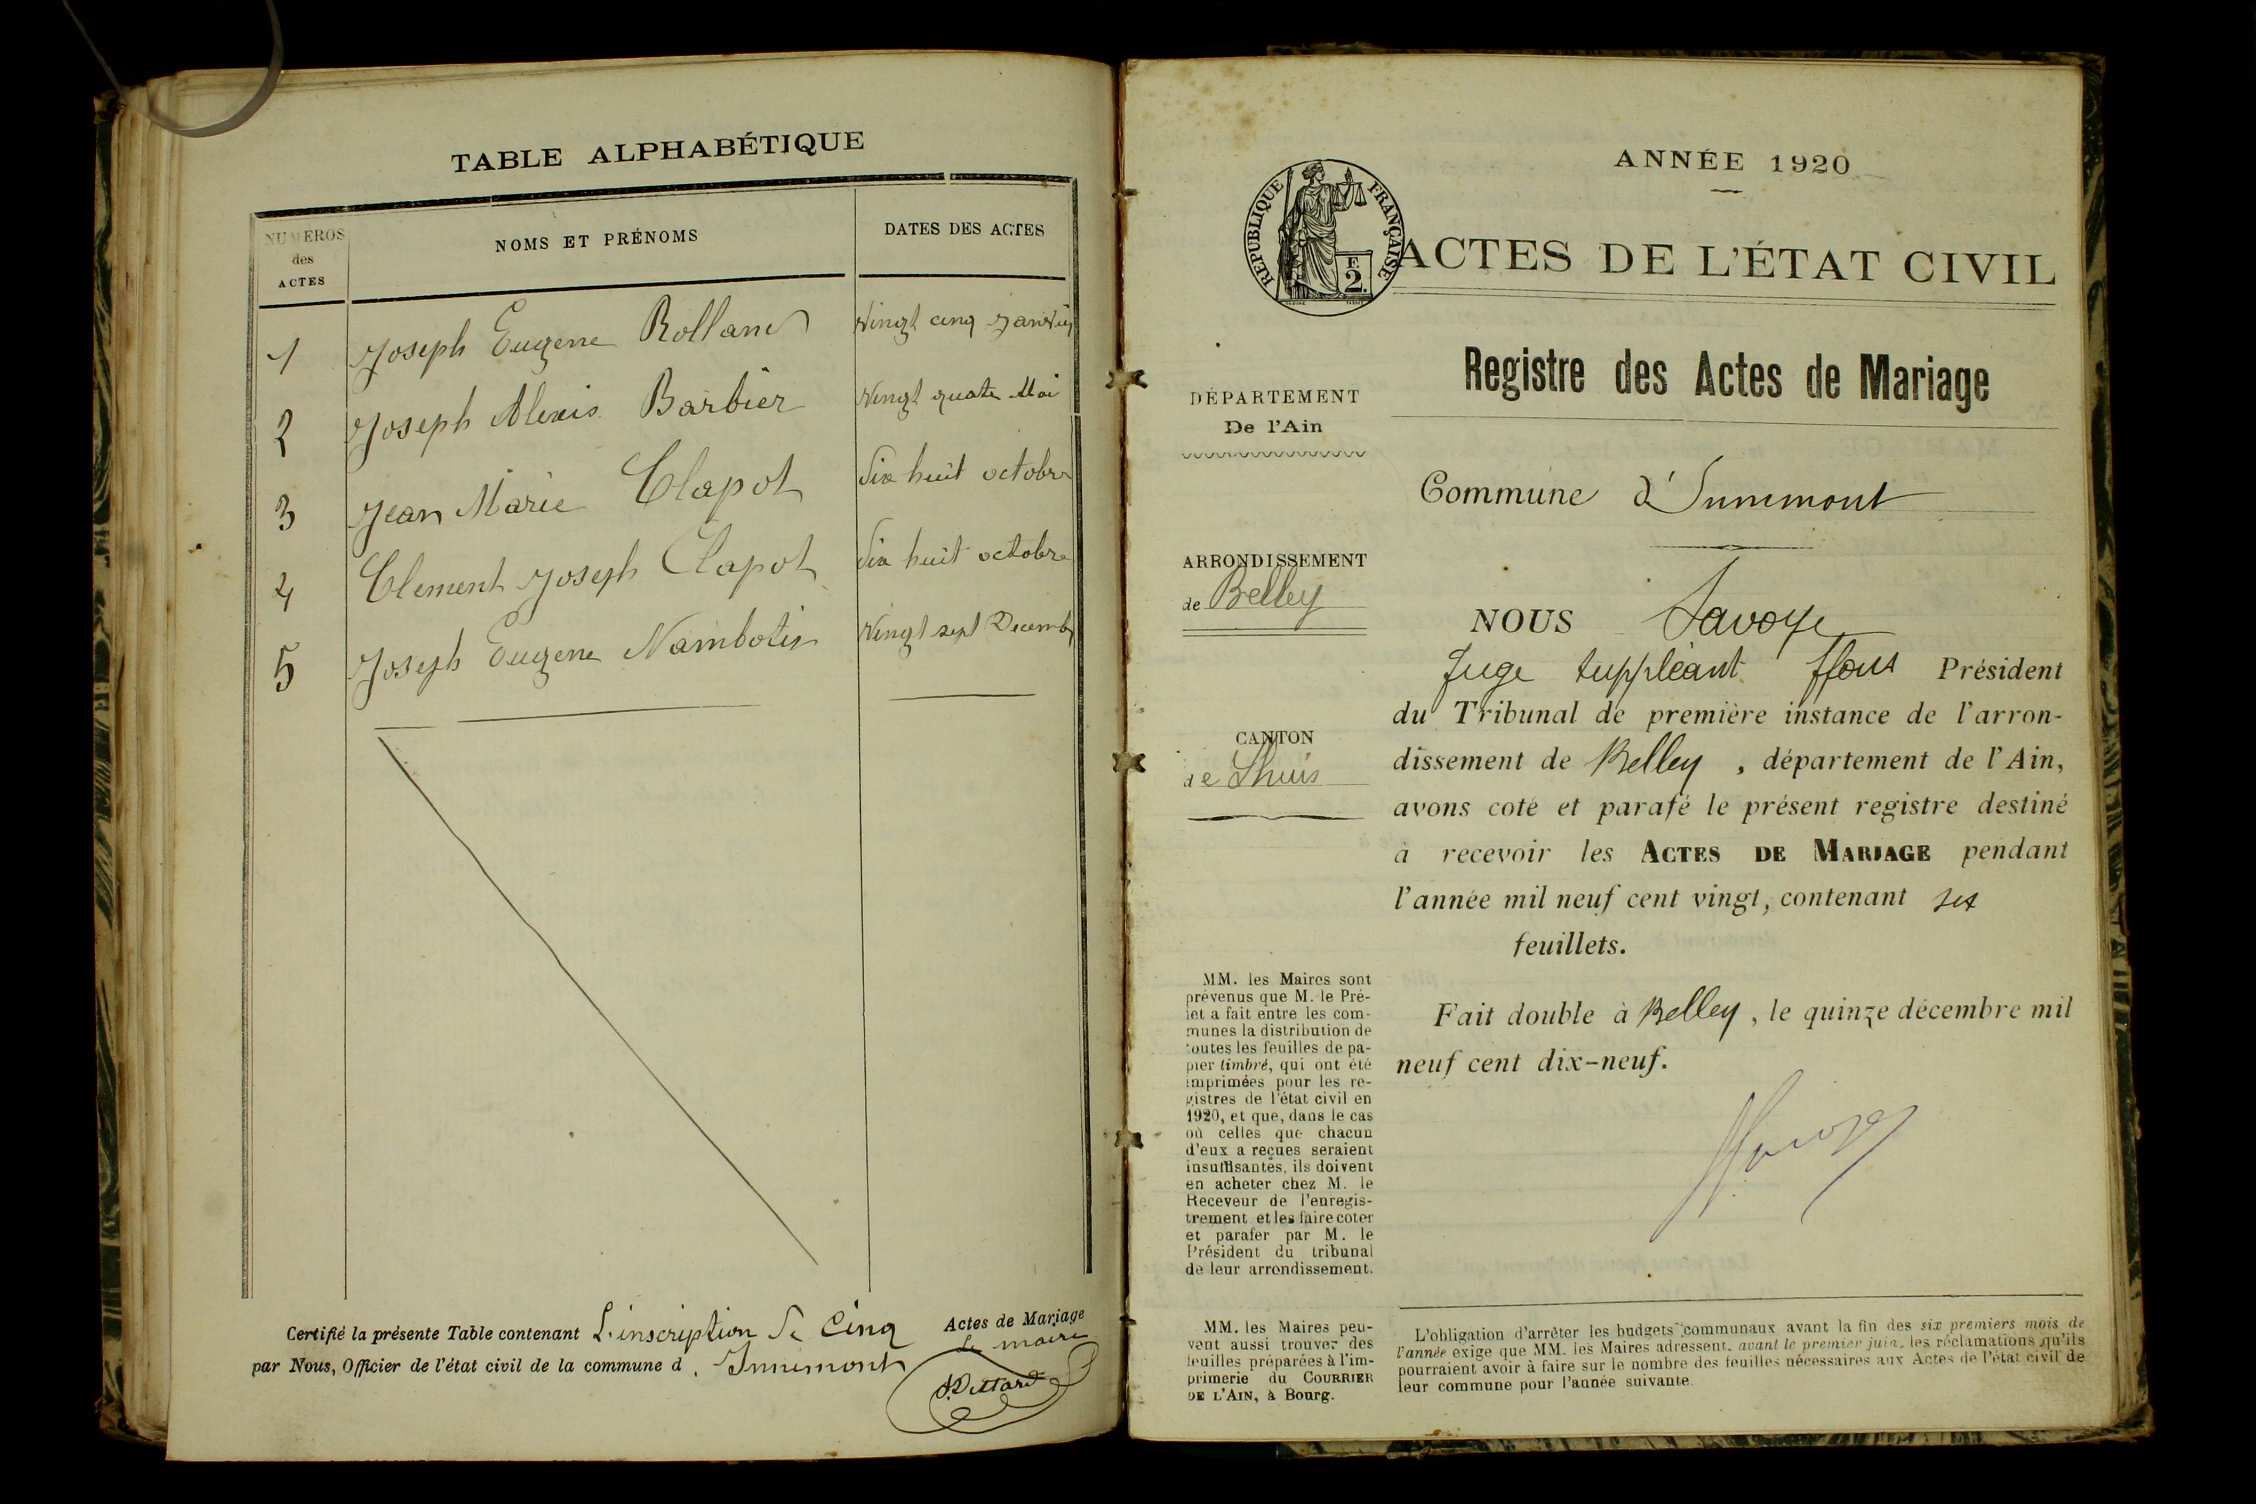 TABLE ALPHABÉTIQUE
NUMÉROS des ACTES
NOMS ET PRÉNOMS
DATES DES ACTES
1 Joseph Eugene Rolland Vingt cinq Janvier
2 Joseph Alexis Barbier Vingt quatre Mai
3 Jean Marie Clapot Dix huit octobre
4 Clement Joseph Clapot Dix huit octobre
5 Joseph Eugene Nambotin Vingt sept Decembre
Certifié la présente Table contenant L'inscription de Cinq Actes de Mariage
par Nous, Officier de l'état civil de la commune d Innimont Le maire
ANNÉE 1920
RÉPUBLIQUE FRANÇAISE
F. 2.
ACTES DE L'ÉTAT CIVIL
Registre des Actes de Mariage
DÉPARTEMENT
De l'Ain
Commune d'Innimont
ARRONDISSEMENT
de Belley
CANTON
de Lhuis
NOUS Savoye
Juge suppléant ffons Président
du Tribunal de première instance de l'arron-
dissement de Belley, département de l'Ain,
avons coté et parafé le présent registre destiné
à recevoir les ACTES DE MARIAGE pendant
l'année mil neuf cent vingt, contenant six
feuillets.
Fait double à Belley, le quinze décembre mil
neuf cent dix-neuf.
MM. les Maires sont
prévenus que M. le Pré-
fet a fait entre les com-
munes la distribution de
toutes les feuilles de pa-
pier timbré, qui ont été
imprimées pour les re-
gistres de l'état civil en
1920, et que, dans le cas
où celles que chacun
d'eux a reçues seraient
insuffisantes, ils doivent
en acheter chez M. le
Receveur de l'enregis-
trement et les faire coter
et parafer par M. le
Président du tribunal
de leur arrondissement.
MM. les Maires peu-
vent aussi trouver des
feuilles préparées à l'im-
primerie du COURRIER
DE L'AIN, à Bourg.
L'obligation d'arrêter les budgets communaux avant la fin des six premiers mois de
l'année exige que MM. les Maires adressent, avant le premier juin, les réclamations qu'ils
pourraient avoir à faire sur le nombre des feuilles nécessaires aux Actes de l'état civil de
leur commune pour l'année suivante.